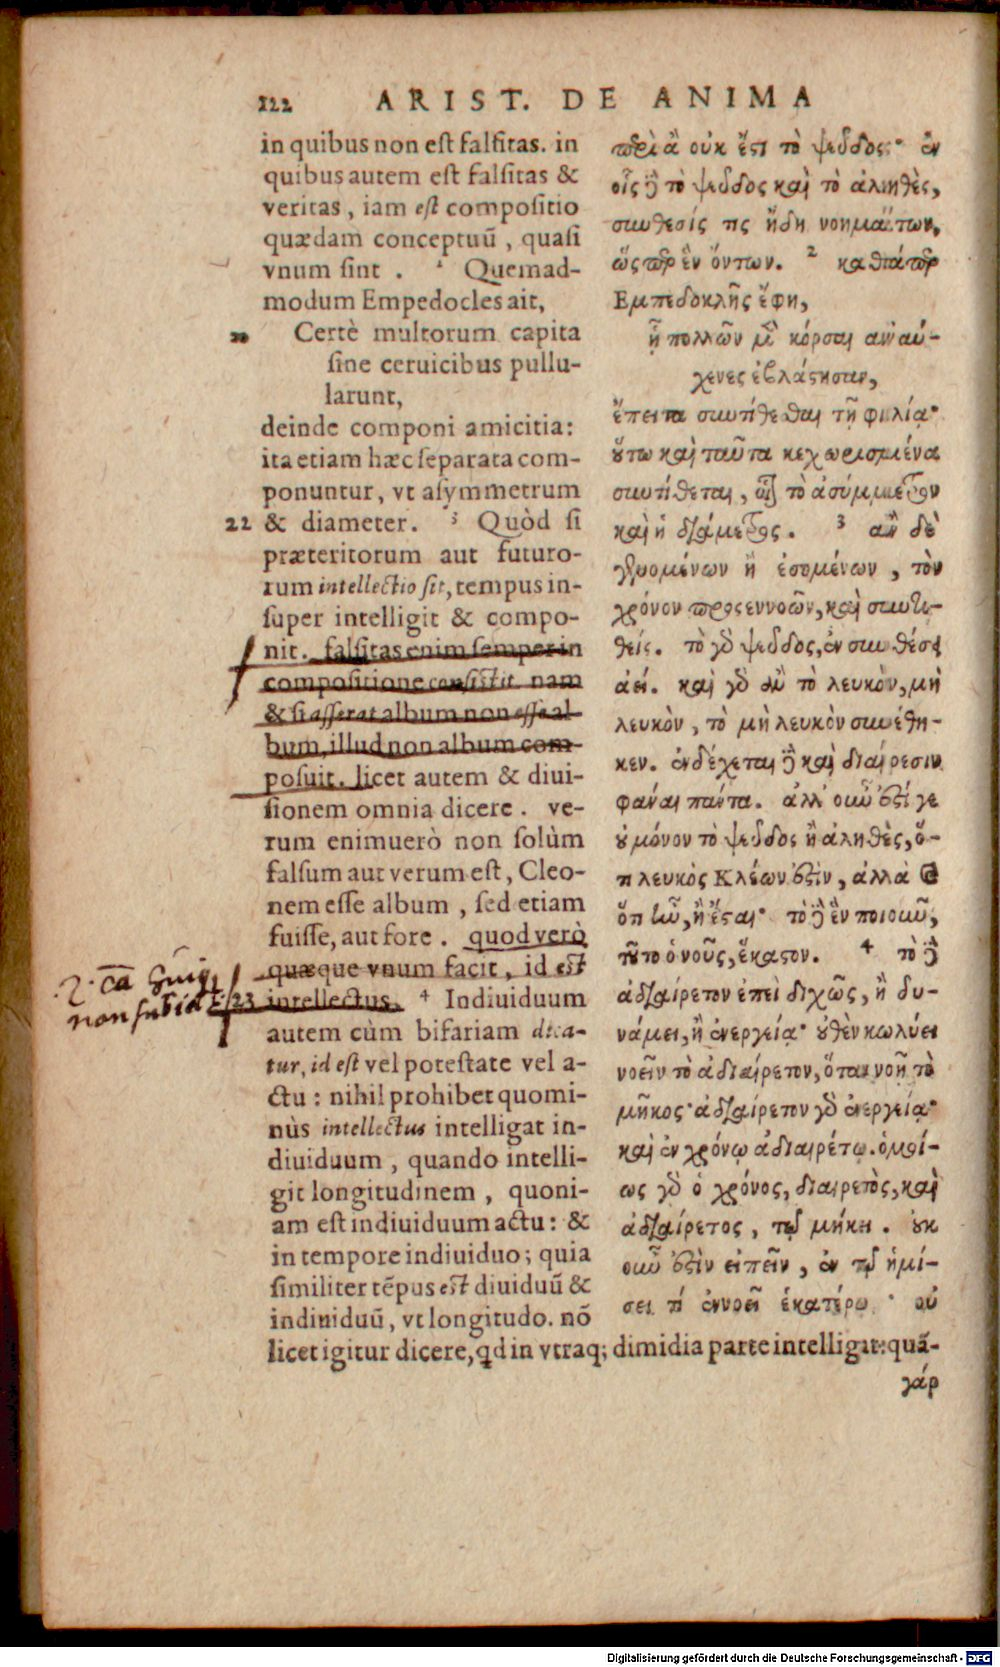 122 ARIST. DE ANIMA
in quibus non est falsitas. in
quibus autem est falsitas &
veritas, iam est compositio
quædam conceptuũ, quasi
vnum sint. ² Quemad-
modum Empedocles ait,
Certè multorum capita
sine ceruicibus pullu-
larunt,
deinde componi amicitia:
ita etiam hæc separata com-
ponuntur, vt asymmetrum
22 & diameter. ³ Quòd si
præteritorum aut futuro-
rum intellectio sit, tempus in-
super intelligit & compo-
nit. falsitas enim semper in
compositione consistit. nam
& si asserat album non esse al-
bum, illud non album com-
posuit. licet autem & diui-
sionem omnia dicere. ve-
rum enimuerò non solùm
falsum aut verum est, Cleo-
nem esse album, sed etiam
fuisse, aut fore. quod verò
quæque vnum facit, id est
23 intellectus. ⁴ Indiuiduum
autem cùm bifariam dica-
tur, id est vel potestate vel a-
ctu: nihil prohibet quomi-
nùs intellectus intelligat in-
diuiduum, quando intelli-
git longitudinem, quoni-
am est indiuiduum actu: &
in tempore indiuiduo; quia
similiter tẽpus est diuiduũ &
indiuiduũ, vt longitudo. nõ
licet igitur dicere, qd in vtraq; dimidia parte intelligat: quã-
περὶ ἃ οὐκ ἔστι τὸ ψεῦδος· ἐν
οἷς δὲ τὸ ψεῦδος καὶ τὸ ἀληθὲς,
συνθεσίς τις ἤδη νοημάτων,
ὥσπερ ἓν ὄντων. ² καθάπερ
Ἐμπεδοκλῆς ἔφη,
ᾗ πολλῶν μὲν κόρσαι ἀναύ-
χενες ἐβλάστησαν,
ἔπειτα συντίθεσθαι τῇ φιλίᾳ·
οὕτω καὶ ταῦτα κεχωρισμένα
συντίθεται, οἷον τὸ ἀσύμμετρον
καὶ ἡ διάμετρος. ³ ἂν δὲ
γενομένων ἢ ἐσομένων, τὸν
χρόνον προσεννοῶν, καὶ συντι-
θείς. τὸ γὰρ ψεῦδος, ἐν συνθέσει
ἀεί. καὶ γὰρ ἂν τὸ λευκὸν, μὴ
λευκὸν, τὸ μὴ λευκὸν συνέθη-
κεν. ἐνδέχεται δὲ καὶ διαίρεσιν
φάναι πάντα. ἀλλ' οὖν ἐστί γε
οὐ μόνον τὸ ψεῦδος ἢ ἀληθὲς, ὅ-
τι λευκὸς Κλέων ἐστὶν, ἀλλὰ καὶ
ὅτι ἦν, ἢ ἔσται· τὸ δὲ ἓν ποιοῦν,
τοῦτο ὁ νοῦς, ἕκαστον. ⁴ τὸ δὲ
ἀδιαίρετον ἐπεὶ διχῶς, ἢ δυ-
νάμει, ἢ ἐνεργείᾳ· οὐθὲν κωλύει
νοεῖν τὸ ἀδιαίρετον, ὅταν νοῇ τὸ
μῆκος· ἀδιαίρετον γὰρ ἐνεργείᾳ·
καὶ ἐν χρόνῳ ἀδιαιρέτῳ. ὁμοί-
ως γὰρ ὁ χρόνος, διαιρετὸς, καὶ
ἀδιαίρετος, τῷ μήκει. οὐκ
οὖν ἐστὶν εἰπεῖν, ἐν τῷ ἡμί-
σει τί ἐννοεῖ ἑκατέρῳ· οὐ
γάρ
non subid
Digitalisierung gefördert durch die Deutsche Forschungsgemeinschaft - DFG